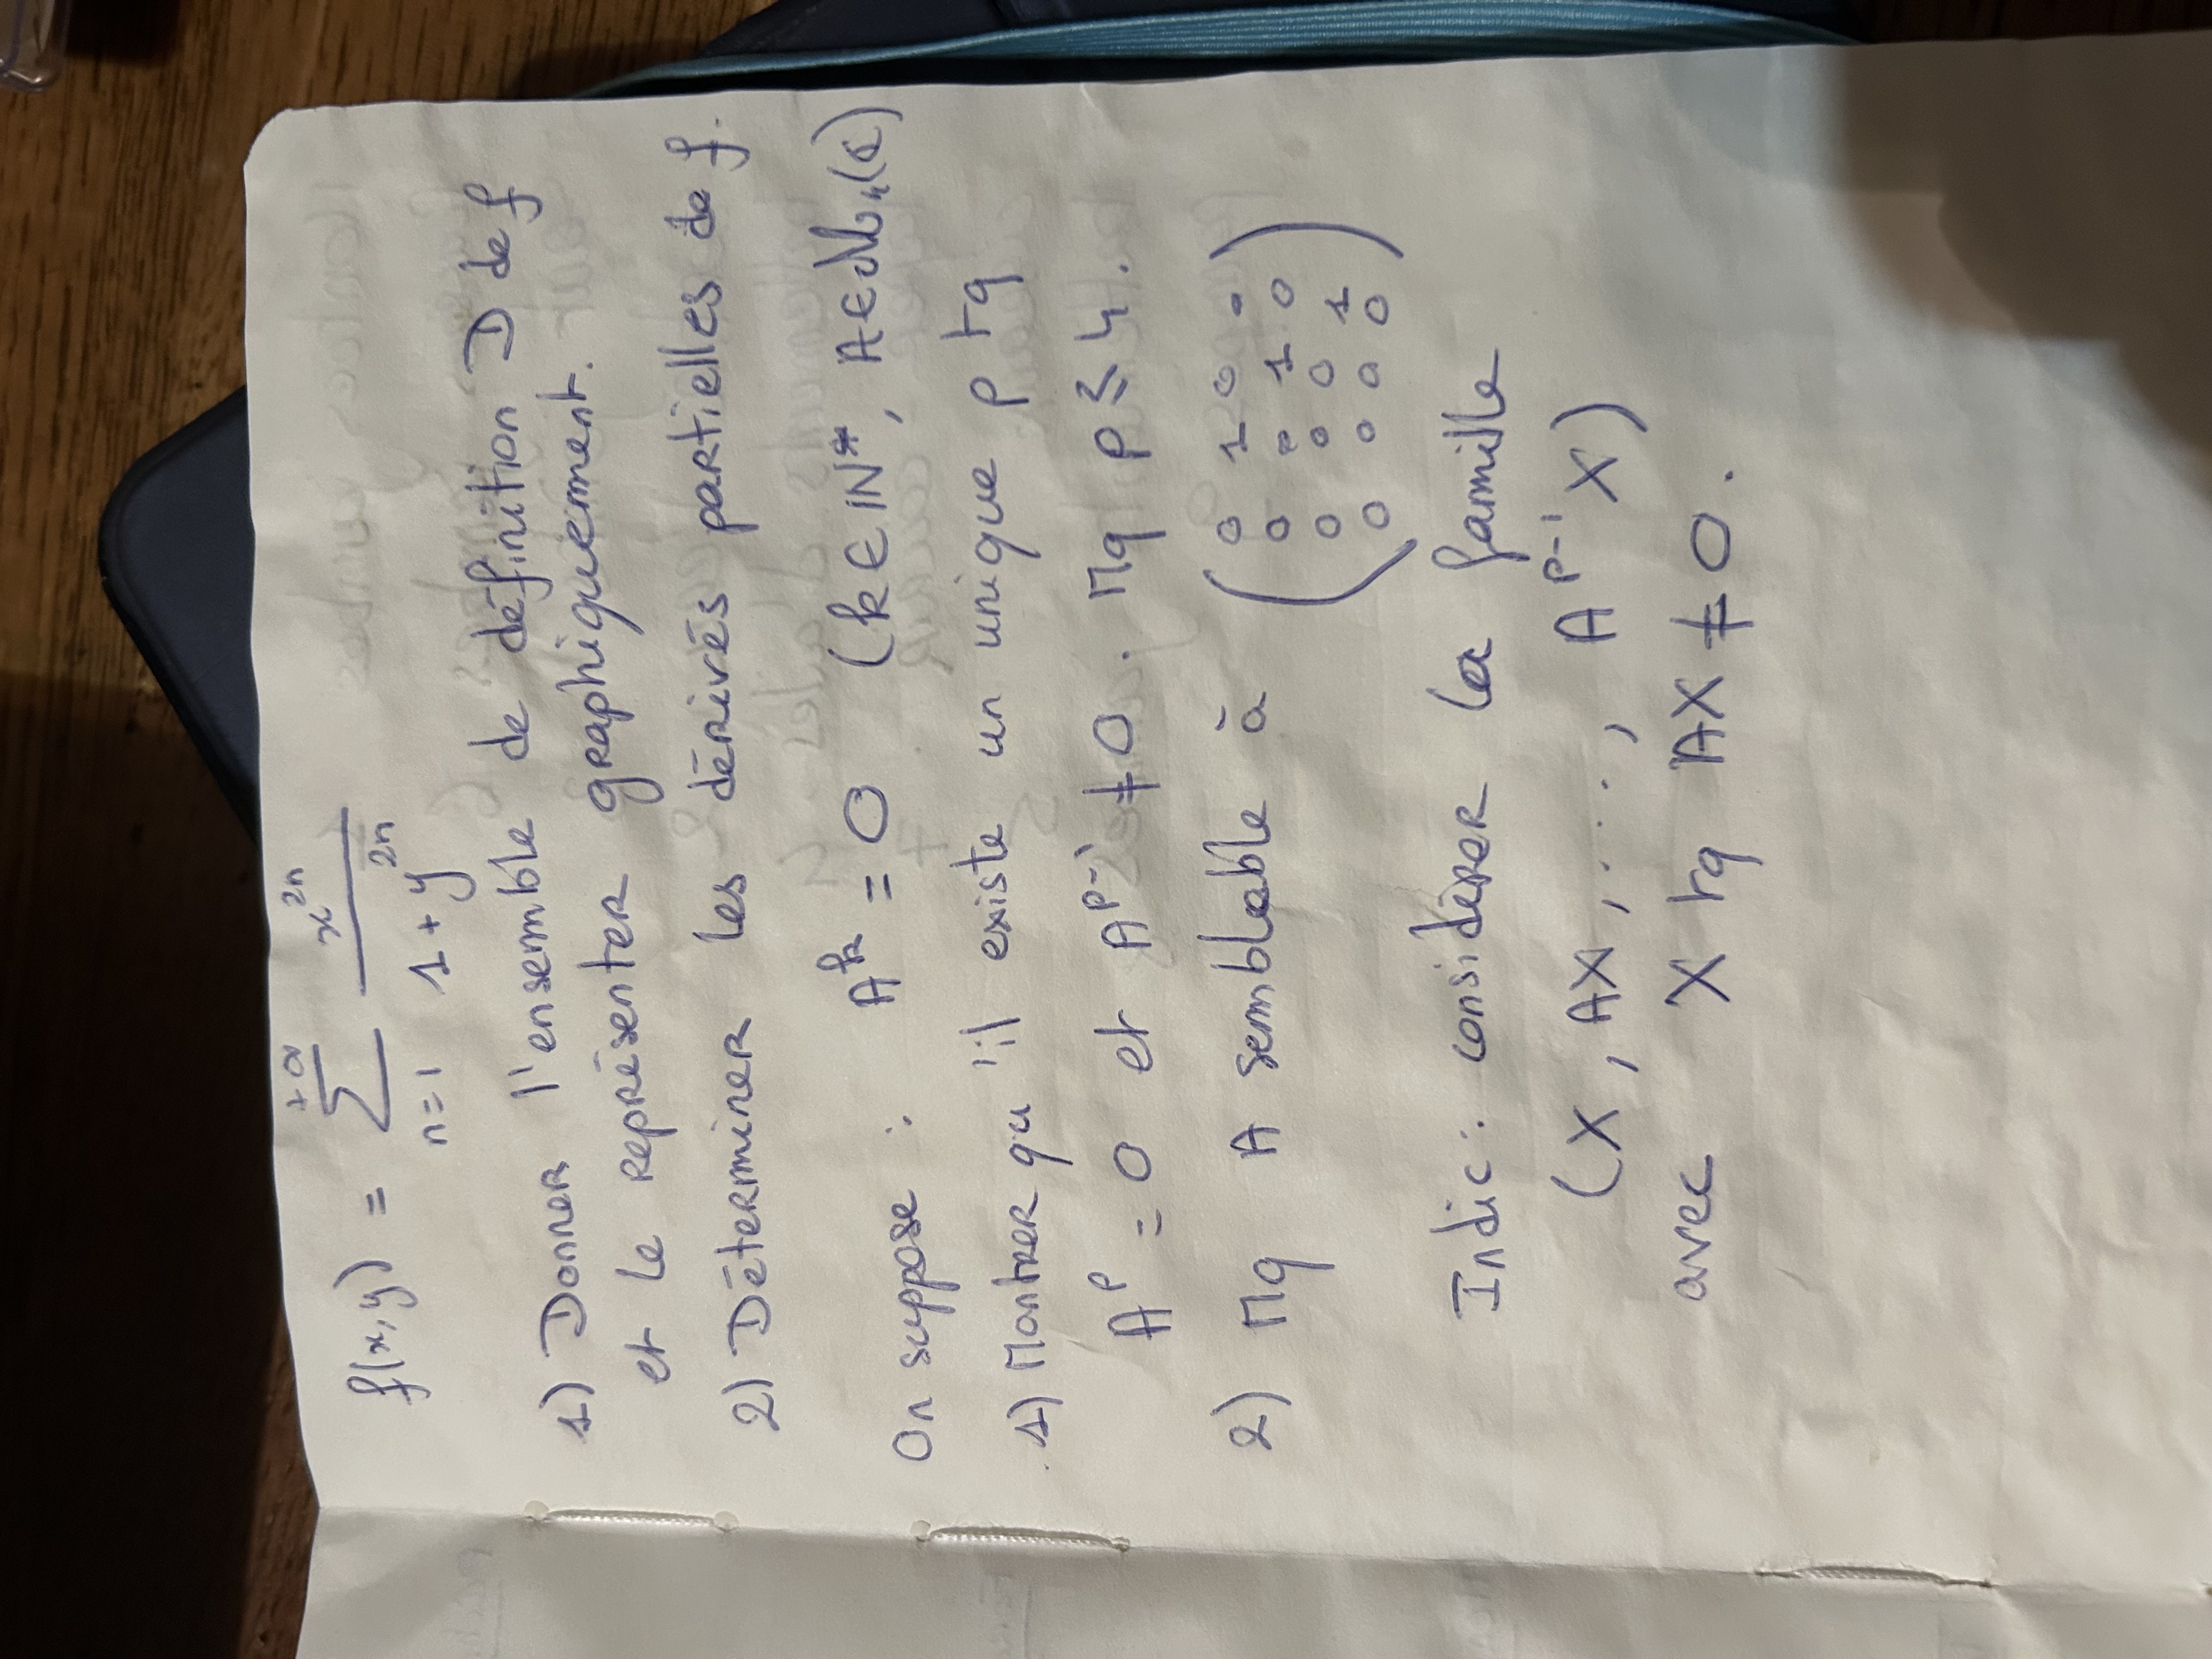 f(x,y) = +∞ Σ n=1 x^2n / 1 + y^2n
1) Donner l'ensemble de définition D de f
et le représenter graphiquement.
2) Déterminer les dérivés partielles de f.
On suppose : A^k = 0 (k ∈ IN*, A ∈ M4( )
1) Montrer qu'il existe un unique p tq
A^p = 0 et A^p-1 ≠ 0. Mq p ≤ 4.
2) Mq A semblable à
( 0 1 0 0
0 0 1 0
0 0 0 1
0 0 0 0 )
Indic : considérer la famille
(X, AX, ...., A^p-1 X)
avec X tq AX ≠ 0.